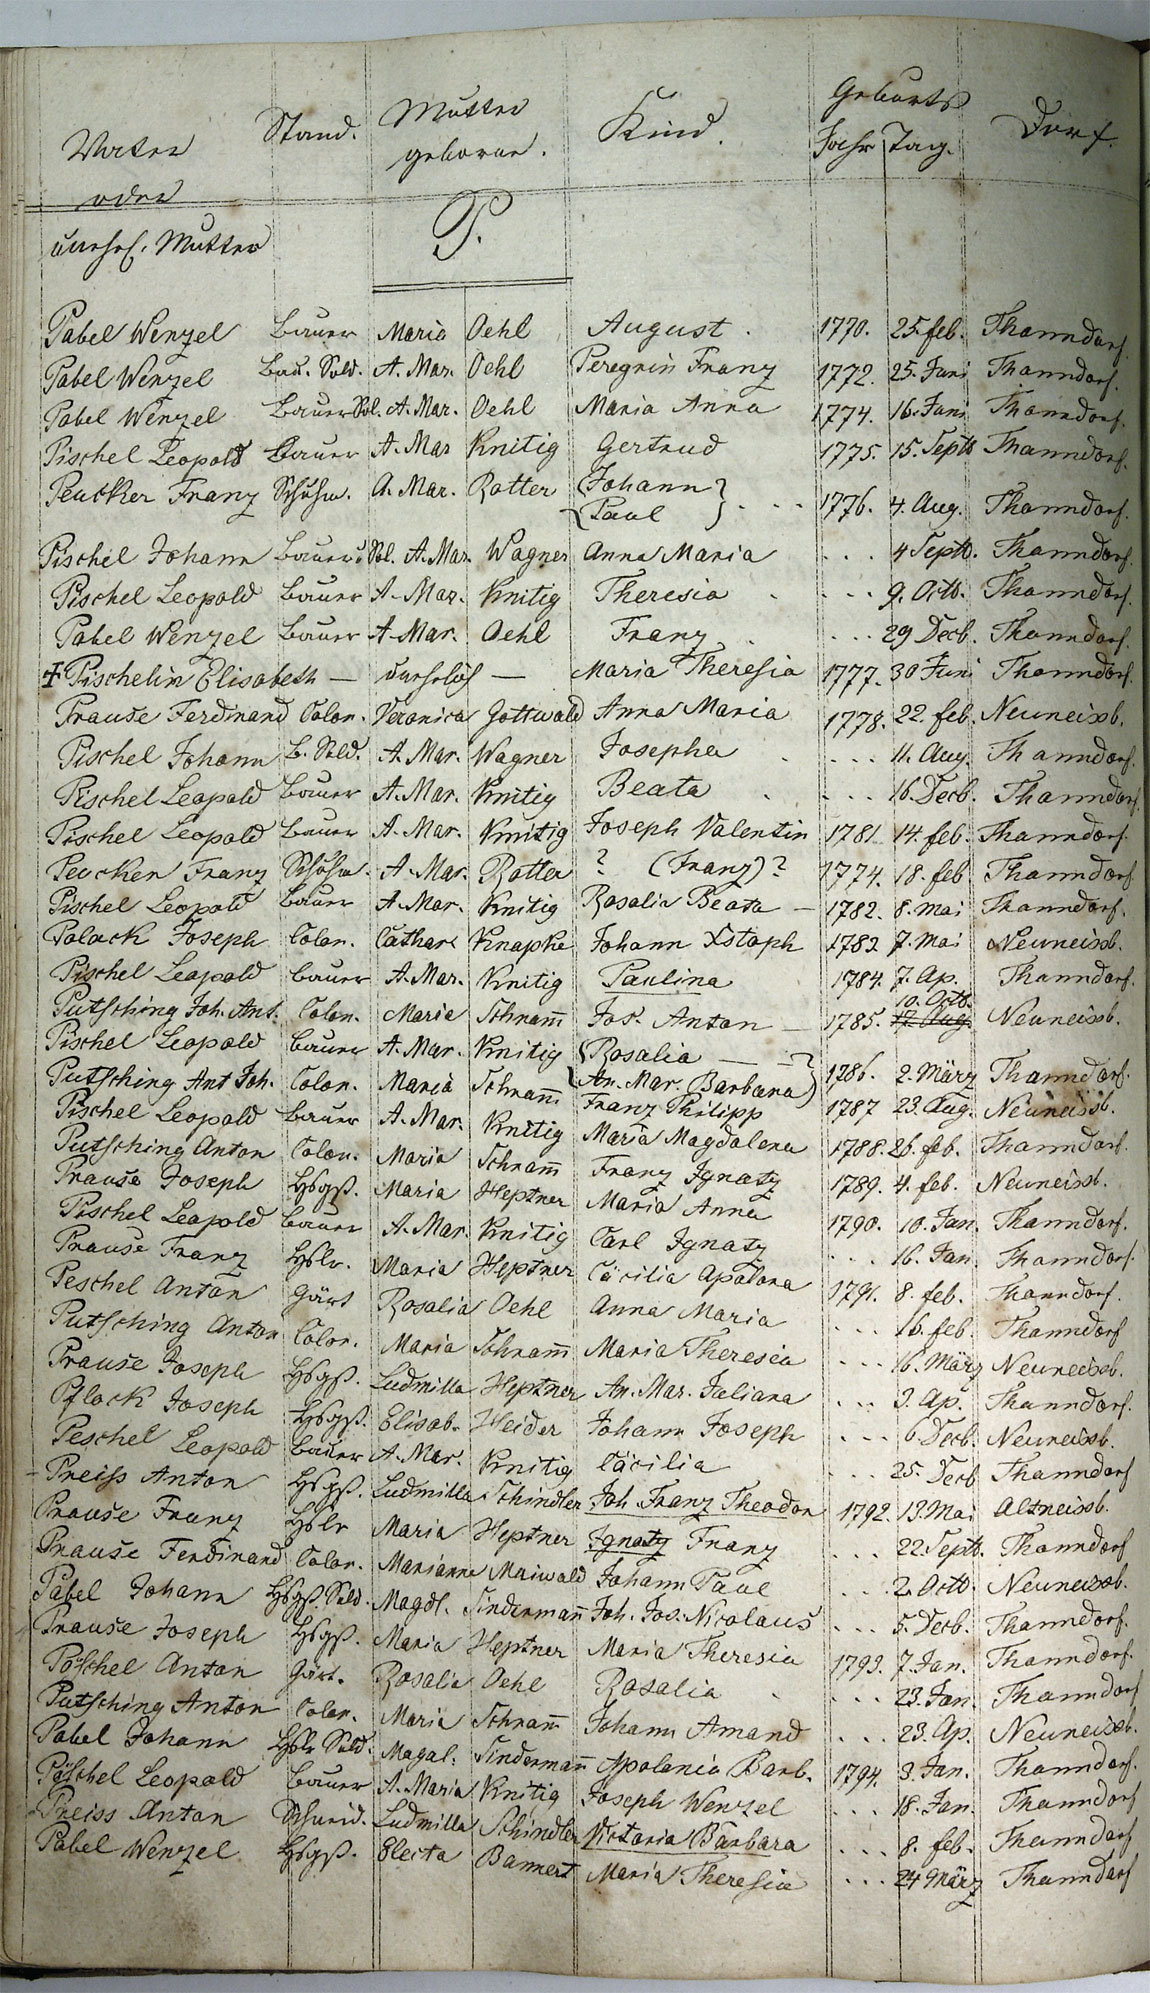 Vater
oder
unehel. Mutter
Stand.
Mutter
geborne.
Kind.
Geburts
Jahr Tag.
Dorf.
P.
Pabel Wenzel Bauer Maria Oehl August. 1770. 25. feb. Thanndorf.
Pabel Wenzel Bau. Sold. A. Mar. Oehl Peregrin Franz 1772. 25. Juni Thanndorf.
Pabel Wenzel Bauer Sol. A. Mar. Oehl Maria Anna 1774. 16. Juni Thanndorf.
Pischel Leopold Bauer A. Mar Knitig Gertrud 1775. 15. Septb Thanndorf.
Peucker Franz Schuhm. A. Mar. Rotter {Johann
{Paul } . . . 1776. 4. Aug. Thanndorf.
Pischel Johann Bauer u Sol. A. Mar. Wagner Anna Maria . . . 4 Septb. Thanndorf.
Pischel Leopold Bauer A. Mar. Knitig Theresia . . . . 9. Octb. Thanndorf.
Pabel Wenzel Bauer A. Mar. Oehl Franz . . . . 29 Decb. Thanndorf.
+ Pischelin Elisabeth — unehelich — Maria Theresia 1777. 30 Juni Thanndorf.
Prause Ferdinand Colon. Veronica Gottwald Anna Maria 1778. 22. feb. Neuneissb.
Pischel Johann B. Sold. A. Mar. Wagner Josepha . . . . 11. Aug. Thanndorf.
Pischel Leopold Bauer A. Mar. Knitig Beata . . . . 16. Decb. Thanndorf.
Pischel Leopold Bauer A. Mar. Knitig Joseph Valentin 1781. 14. feb. Thanndorf.
Peucker Franz Schuhm. A. Mar. Rotter ? (Franz) ? 1774. 18. feb Thanndorf
Pischel Leopold Bauer A. Mar. Knitig Rosalia Beata — 1782. 8. Mai Thanndorf.
Polack Joseph Colon. Cathar Knapke Johann Xstoph 1782 7. Mai Neuneissb.
Pischel Leopold Bauer A. Mar. Knitig Paulina 1784. 7. Ap. Thanndorf.
Putsching Joh. Ant. Colon. Maria Schram̅ Jos. Anton — 1785. 10. Octb. 17. Aug. Neuneissb.
Pischel Leopold Bauer A. Mar. Knitig {Rosalia —
{An. Mar. Barbara} 1786. 2. März Thanndorf.
Putsching Ant Joh. Colon. Maria Schram̅ Franz Philipp 1787 23. Aug. Neuneissb.
Pischel Leopold Bauer A. Mar. Knitig Maria Magdalena 1788. 26. feb. Thanndorf.
Putsching Anton Colon. Maria Schram̅ Franz Ignatz 1789. 4. feb. Neuneissb.
Prause Joseph Hsgß. Maria Heptner Maria Anna 1790. 10. Jan. Thanndorf.
Pischel Leopold Bauer A. Mar. Knitig Carl Ignatz . . 16. Jan. Thanndorf.
Prause Franz Hslr. Maria Heptner Cäcilia Apolona 1791. 8. feb. Thanndorf.
Peschel Anton Gärt Rosalia Oehl Anna Maria . . . 16. feb. Thanndorf
Putsching Anton Colon. Maria Schram̅ Maria Theresia . . . 16. März Neuneissb.
Prause Joseph Hsgß. Ludmilla Heptner An. Mar. Juliana . . . 3. Ap. Thanndorf.
Pflock Joseph Hsgß. Elisab. Weider Johann Joseph . . . 6 Decb. Neuneissb.
Peschel Leopold Bauer A. Mar. Knitig Cäcilia . . . 25. Decb Thanndorf
Preiss Anton Hsgß. Ludmilla Schindler Joh. Franz Theodor 1792. 13. Mai Altneissb.
Prause Franz Hslr Maria Heptner Ignatz Franz . . . 22. Septb. Thanndorf
Prause Ferdinand Colon. Marianne Maiwald Johann Paul . . . 2. Octb. Neuneissb.
Pabel Johann Hsgß. Sold. Magdl. Sinderman̅ Joh. Jos. Nicolaus . . . 5. Decb. Thanndorf.
Prause Joseph Hsgß. Maria Heptner Maria Theresia 1793. 7. Jan. Thanndorf.
Pöschel Anton Gärt. Rosalia Oehl Rosalia . . . . 23. Jan. Thanndorf
Putsching Anton Colon. Maria Schram̅ Johann Amand . . . 23. Ap. Neuneissb.
Pabel Johann Hslr Sold. Magal. Sinderman̅ Apolonia Barb. 1794. 3. Jan. Thanndorf.
Pöschel Leopold Bauer A. Maria Knitig Joseph Wenzel . . . 18. Jan. Thanndorf
Preiss Anton Schneid. Ludmilla Schindler Victoria Barbara . . . 8. feb. Thanndorf
Pabel Wenzel Hsgß. Electa Bannert Maria Theresia . . . 24 März Thanndorf